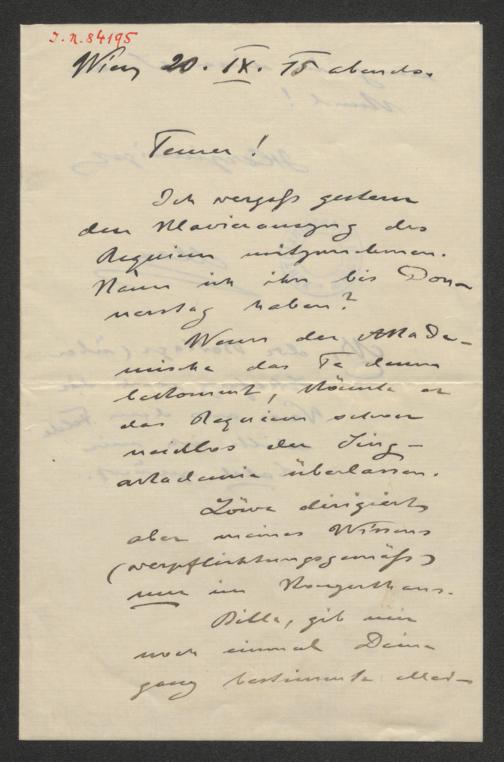 I.N. 84195
Wien 20. IX. 15 abends.
Teurer!
Ich vergaß gestern
den Klavierauszug des
Requiem mitzunehmen.
Kann ich ihn bis Don-
nerstag haben?
Wenn der Akade-
mische das Te deum
bekommt, könnte er
das Requiem schon
neidlos der Sing-
akademie überlassen.
Löwe dirigiert
aber meines Wissens
(verpflichtungsgemäß)
nur im Konzerthaus.
Bitte, gib mir
noch einmal Deine
ganz bestimmte Mei-